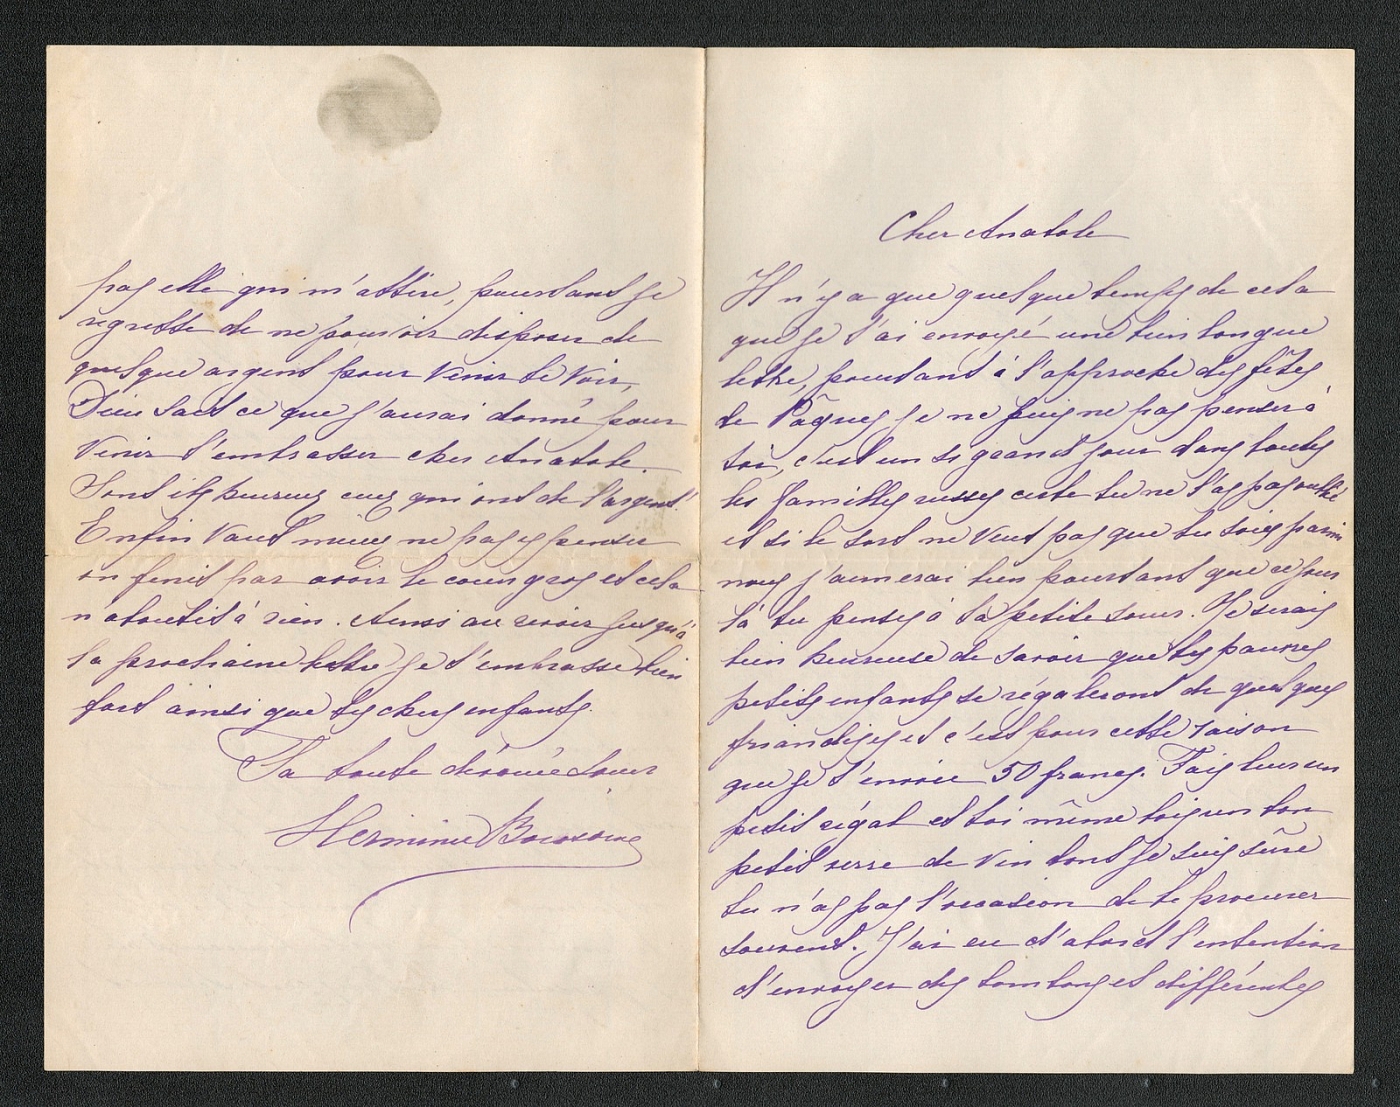 Cher Anatole
Il n'y a que quelque temps de cela
que je t'ai envoyé une bien longue
lettre, pourtant à l'approche des fêtes
de Pâques je ne puis ne pas penser à
toi, c'est un si grand jour dans toutes
les familles russes certe tu ne l'as pas oublié
et si le sort ne veut pas que tu sois parmi
nous j'aimerai bien pourtant que ce jour
là tu penses à ta petite sœur. Je serais
bien heureuse de savoir que tes pauvres
petits enfants se régaleront de quelques
friandises et c'est pour cette raison
que je t'envoie 50 francs. Fais leur un
petit régal et toi même bois un bon
petit verre de vin dont je suis sûre
tu n'as pas l'occasion de te procurer
souvent. J'ai eu d'abord l'intention
d'envoyer des bonbons et différentes
pas elle qui m'attire, pourtant je
regrette de ne pouvoir disposer de
quelque argent pour venir te voir,
Dieu sait ce que j'aurai donné pour
venir t'embrasser cher Anatole.
Sont ils heureux ceux qui ont de l'argent!
Enfin vaut mieux ne pas y penser
on finit par avoir le cœur gros et cela
n'aboutit à rien. Ainsi au revoir jusqu'à
la prochaine lettre je t'embrasse bien
fort ainsi que tes chers enfants.
Ta toute dévouée sœur
Herminie